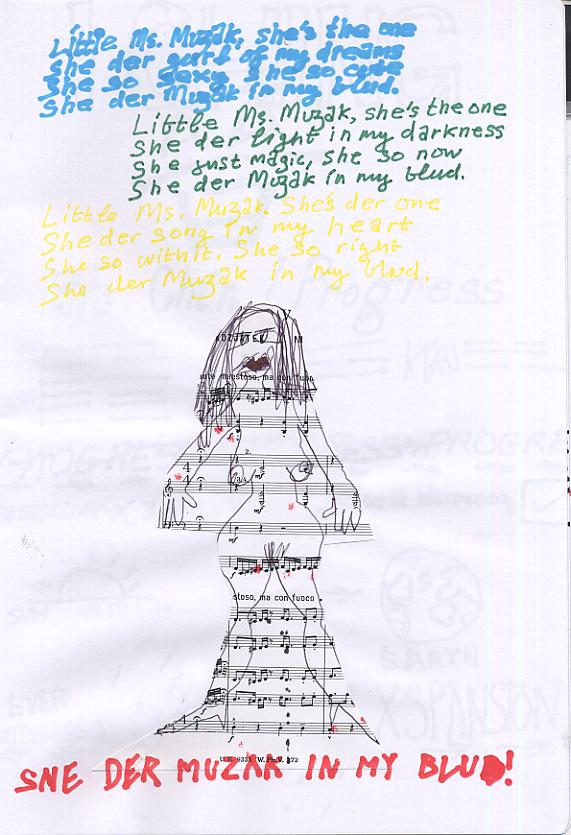 Little Ms. Muzak, she's the one
She der gurl of my dreams
She so sexy. She so cute
She der Muzak in my blud.
Little Ms. Muzak, she's the one
She der light in my darkness
She just magic, she so now
She der Muzak in my blud.
Little Ms. Muzak. She's der one
She der song in my heart
She so with it. She so right
She der Muzak in my blud.
maestoso, ma con fuoco
2.
3/4
mf
mf
stoso, ma con fuoco
U.E. 9331 W. Ph.V. 172
SHE DER MUZAK IN MY BLUD!
Progress
EARTH
EXSPANSION
EVER